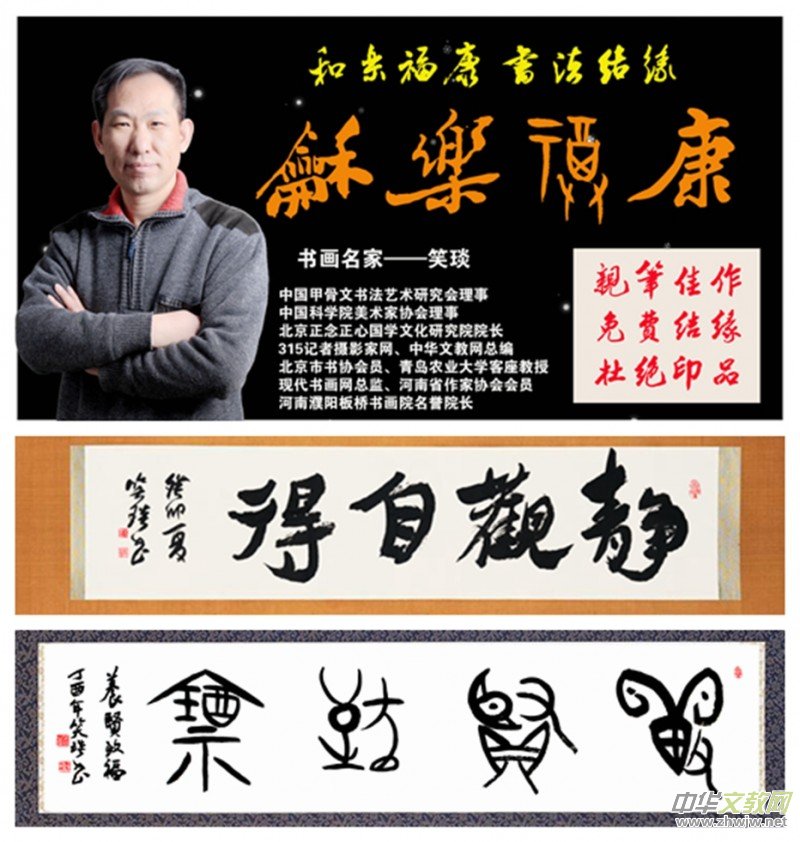 和乐福康 书法结缘
龢樂福康
书画名家——笑琰
中国甲骨文书法艺术研究会理事
中国科学院美术家协会理事
北京正念正心国学文化研究院院长
315记者摄影家网、中华文教网总编
北京市书协会员、青岛农业大学客座教授
现代书画网总监、河南省作家协会会员
河南濮阳板桥书画院名誉院长
親筆佳作
免費结缘
杜绝印品
靜觀自得
癸卯夏
笑琰书
養賢致福
養賢致福
丁酉年笑琰书
中华文教网
www.zhwjw.net